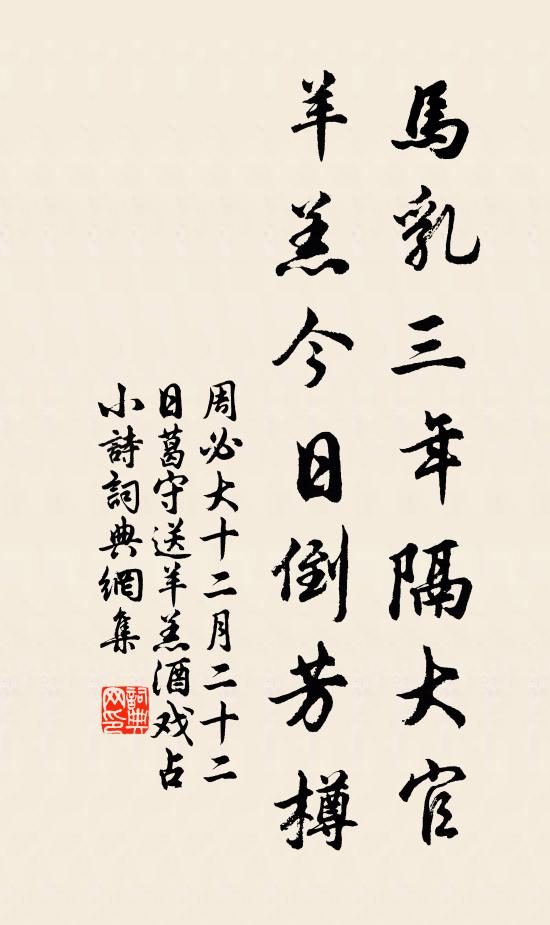 馬乳三年隔大官
羊羔今日倒芳樽
周必大十二月二十二
日葛守送羊羔酒戏占
小詩詞典網集
詞典網印